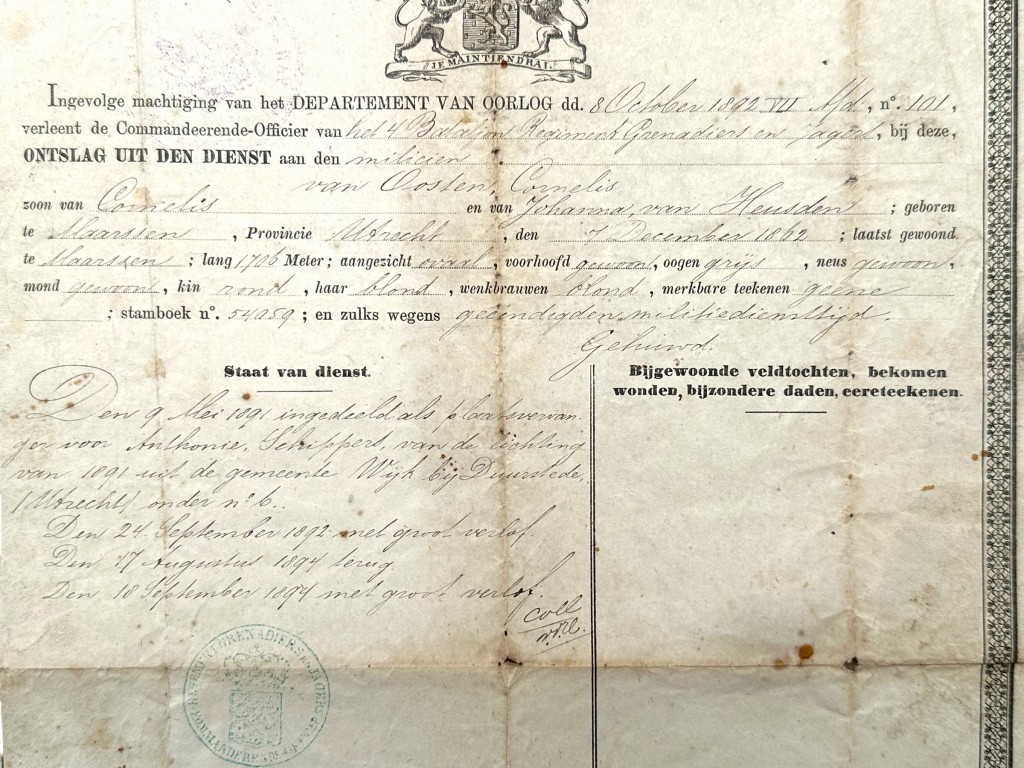 JE MAINTIENDRAI.
Ingevolge machtiging van het DEPARTEMENT VAN OORLOG dd. 8 October 1892 VII Afd., nº. 101,
verleent de Commandeerende-Officier van het 4e Bataljon Regiment Grenadiers en Jagers, bij deze,
ONTSLAG UIT DEN DIENST aan den milicien
van Oosten, Cornelis
zoon van Cornelis en van Johanna van Heusden ; geboren
te Maarssen , Provincie Utrecht , den 7 December 1862 ; laatst gewoond
te Maarssen ; lang 1706 Meter; aangezicht ovaal, voorhoofd gewoon, oogen grijs , neus gewoon,
mond gewoon, kin rond , haar blond , wenkbrauwen blond , merkbare teekenen geene
; stamboek nº. 54059 ; en zulks wegens geëindigden militiediensttijd.
Gehuwd.
Staat van dienst.
Den 9 Mei 1891 ingedeeld als plaatsvervan
ger voor Anthonie Schippers, van de lichting
van 1891 uit de gemeente Wijk bij Duurstede,
(Utrecht) onder nº 6.
Den 24 September 1892 met groot verlof.
Den 17 Augustus 1894 terug
Den 18 September 1894 met groot verlof.
Coll
Bijgewoonde veldtochten, bekomen
wonden, bijzondere daden, eereteekenen.
REGEMENT GRENADIERS EN JAGERS